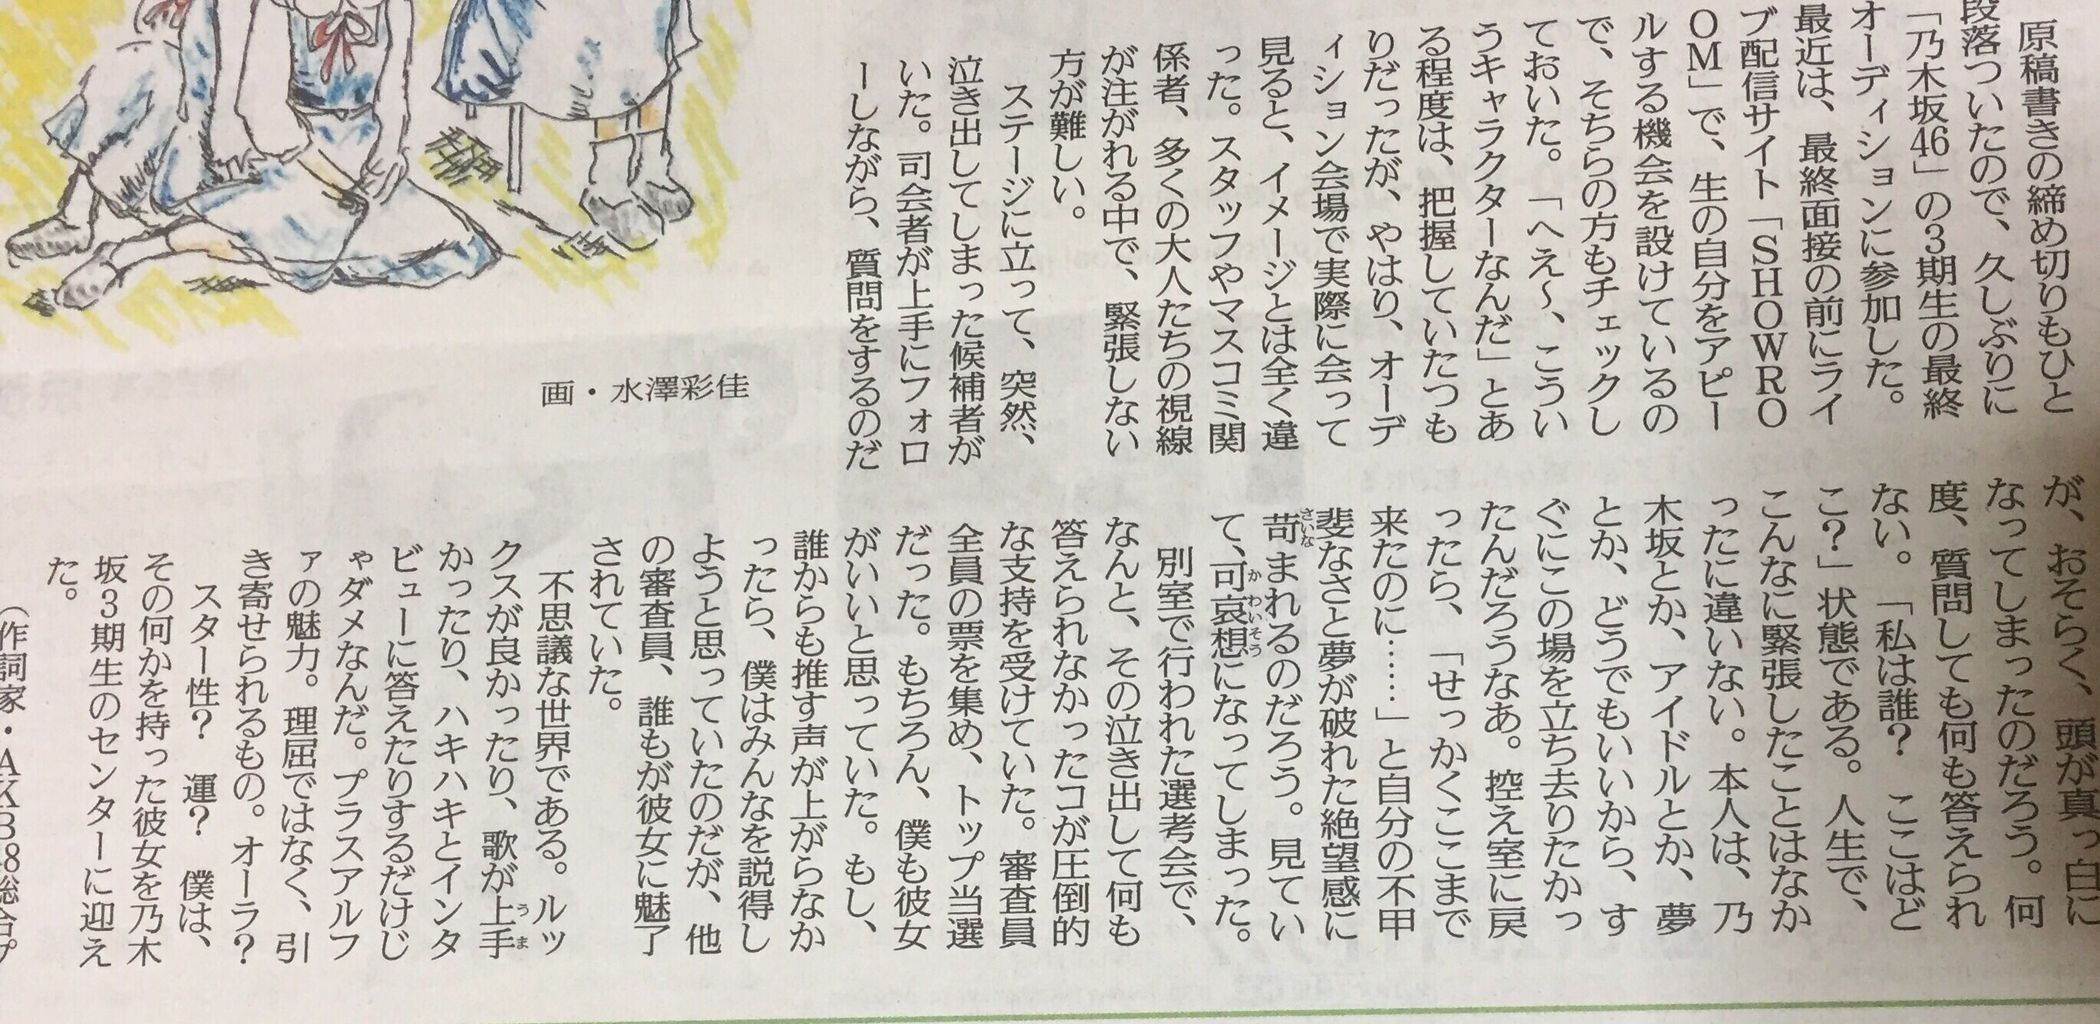 原稿書きの締め切りもひと
段落ついたので、久しぶりに
「乃木坂46」の3期生の最終
オーディションに参加した。
最近は、最終面接の前にライ
ブ配信サイト「SHOWRO
OM」で、生の自分をアピー
ルする機会を設けているの
で、そちらの方もチェックし
ておいた。「へえ〜、こうい
うキャラクターなんだ」とあ
る程度は、把握していたつも
りだったが、やはり、オーデ
ィション会場で実際に会って
見ると、イメージとは全く違
った。スタッフやマスコミ関
係者、多くの大人たちの視線
が注がれる中で、緊張しない
方が難しい。
ステージに立って、突然、
泣き出してしまった候補者が
いた。司会者が上手にフォロ
ーしながら、質問をするのだ
が、おそらく、頭が真っ白に
なってしまったのだろう。何
度、質問しても何も答えられ
ない。「私は誰？　ここはど
こ？」状態である。人生で、
こんなに緊張したことはなか
ったに違いない。本人は、乃
木坂とか、アイドルとか、夢
とか、どうでもいいから、す
ぐにこの場を立ち去りたかっ
たんだろうなあ。控え室に戻
ったら、「せっかくここまで
来たのに……」と自分の不甲
斐なさと夢が破れた絶望感に
苛まれるのだろう。見てい
て、可哀想になってしまった。
別室で行われた選考会で、
なんと、その泣き出して何も
答えられなかったコが圧倒的
な支持を受けていた。審査員
全員の票を集め、トップ当選
だった。もちろん、僕も彼女
がいいと思っていた。もし、
誰からも推す声が上がらなか
ったら、僕はみんなを説得し
ようと思っていたのだが、他
の審査員、誰もが彼女に魅了
されていた。
不思議な世界である。ルッ
クスが良かったり、歌が上手
かったり、ハキハキとインタ
ビューに答えたりするだけじ
ゃダメなんだ。プラスアルフ
ァの魅力。理屈ではなく、引
き寄せられるもの。オーラ？
スター性？　運？　僕は、
その何かを持った彼女を乃木
坂3期生のセンターに迎え
た。
（作詞家・AKB48総合プ
画・水澤彩佳